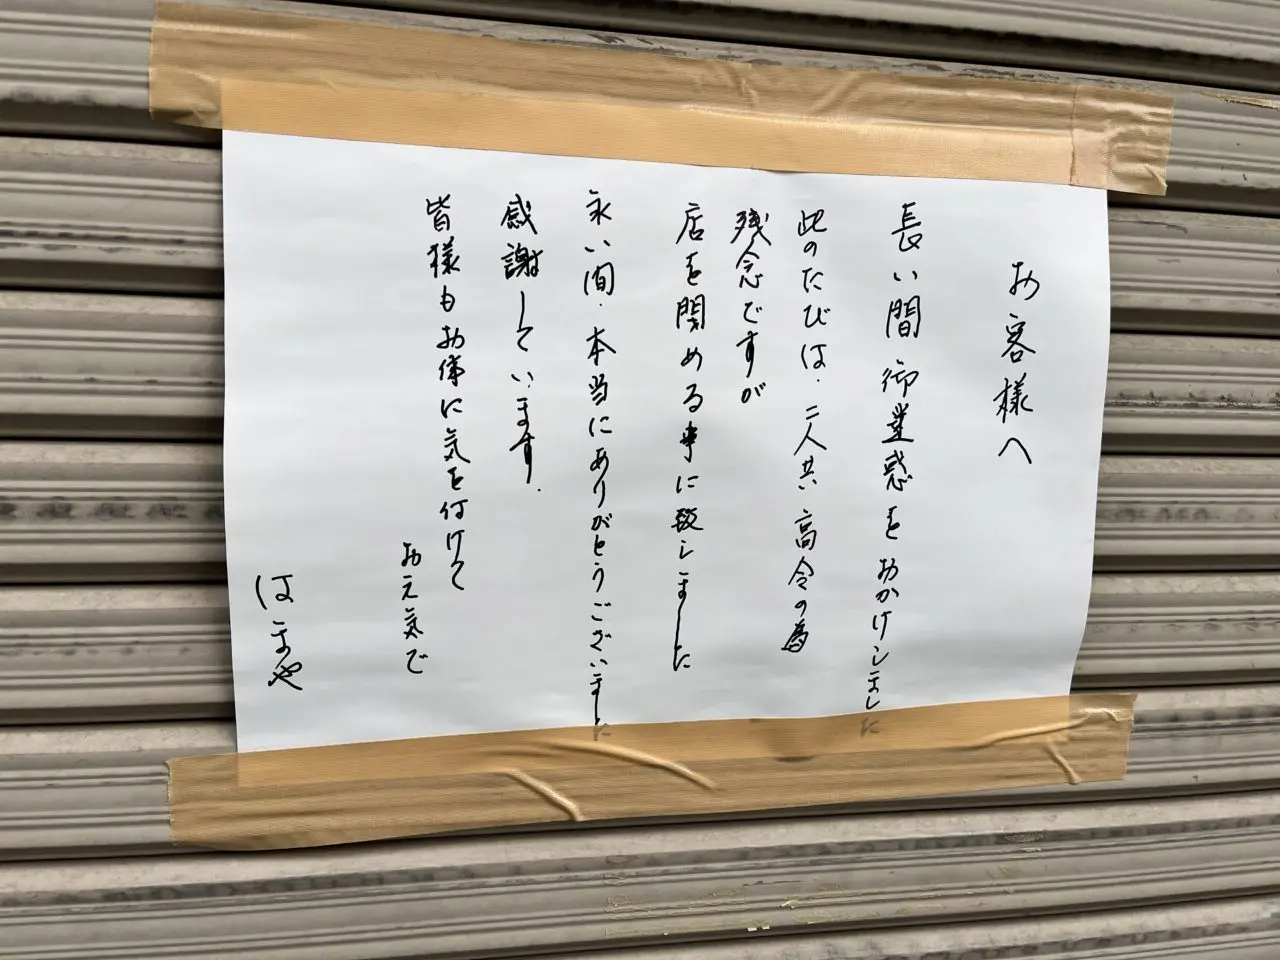 お客様へ
長い間御迷惑をおかけしました
此のたびは、二人共高令の為
残念ですが
店を閉める事に致しました
永い間、本当にありがとうございました
感謝しています。
皆様もお体に気を付けて
お元気で
はまや